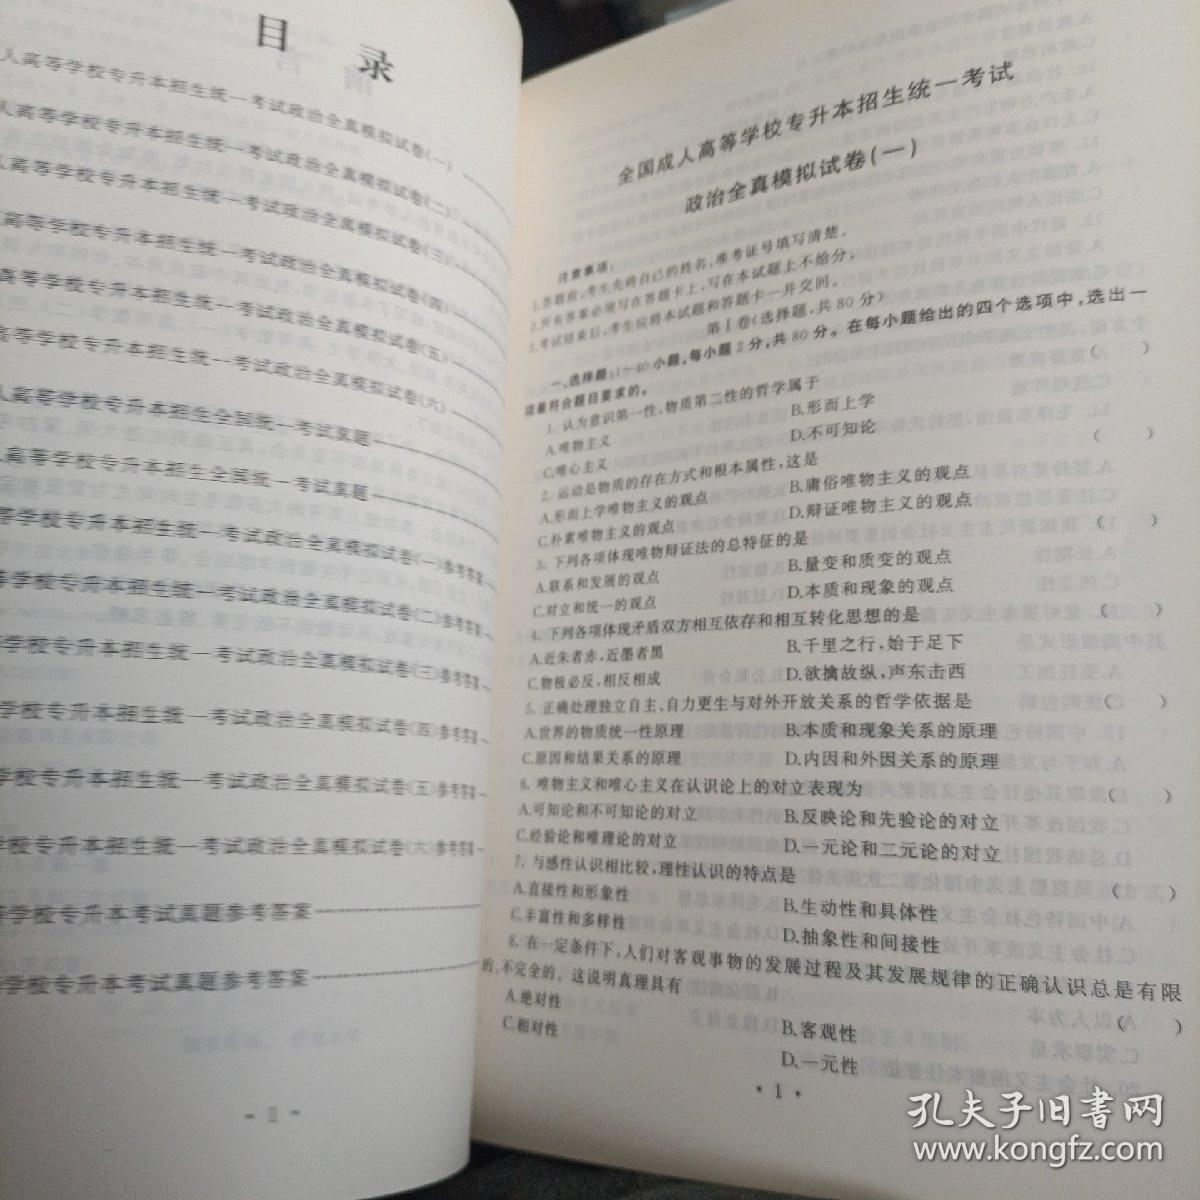 目 录
人高等学校专升本招生统一考试政治全真模拟试卷(一)
人高等学校专升本招生统一考试政治全真模拟试卷(二)
人高等学校专升本招生统一考试政治全真模拟试卷(三)
高等学校专升本招生统一考试政治全真模拟试卷(四)
高等学校专升本招生统一考试政治全真模拟试卷(五)
高等学校专升本招生统一考试政治全真模拟试卷(六)
人高等学校专升本招生全国统一考试真题
人高等学校专升本招生全国统一考试真题
等学校专升本招生统一考试政治全真模拟试卷(一)参考答案
等学校专升本招生统一考试政治全真模拟试卷(二)参考答案
学校专升本招生统一考试政治全真模拟试卷(三)参考答案
学校专升本招生统一考试政治全真模拟试卷(四)参考答案
学校专升本招生统一考试政治全真模拟试卷(五)参考答案
学校专升本招生统一考试政治全真模拟试卷(六)参考答案
等学校专升本考试真题参考答案
学校专升本考试真题参考答案
- Ⅱ -
全国成人高等学校专升本招生统一考试
政治全真模拟试卷(一)
注意事项:
1.答题前,考生先将自己的姓名、准考证号填写清楚。
2.所有答案必须写在答题卡上,写在本试题上不给分。
3.考试结束后,考生应将本试题和答题卡一并交回。
第Ⅰ卷(选择题,共80分)
一、选择题:1～40小题,每小题2分,共80分。在每小题给出的四个选项中,选出一
项最符合题目要求的。
1. 认为意识第一性、物质第二性的哲学属于 ( )
A.唯物主义 B.形而上学
C.唯心主义 D.不可知论
2. 运动是物质的存在方式和根本属性,这是 ( )
A.形而上学唯物主义的观点 B.庸俗唯物主义的观点
C.朴素唯物主义的观点 D.辩证唯物主义的观点
3. 下列各项体现唯物辩证法的总特征的是 ( )
A.联系和发展的观点 B.量变和质变的观点
C.对立和统一的观点 D.本质和现象的观点
4. 下列各项体现矛盾双方相互依存和相互转化思想的是 ( )
A.近朱者赤,近墨者黑 B.千里之行,始于足下
C.物极必反,相反相成 D.欲擒故纵,声东击西
5. 正确处理独立自主、自力更生与对外开放关系的哲学依据是 ( )
A.世界的物质统一性原理 B.本质和现象关系的原理
C.原因和结果关系的原理 D.内因和外因关系的原理
6. 唯物主义和唯心主义在认识论上的对立表现为 ( )
A.可知论和不可知论的对立 B.反映论和先验论的对立
C.经验论和唯理论的对立 D.一元论和二元论的对立
7. 与感性认识相比较,理性认识的特点是 ( )
A.直接性和形象性 B.生动性和具体性
C.丰富性和多样性 D.抽象性和间接性
8. 在一定条件下,人们对客观事物的发展过程及其发展规律的正确认识总是有限
的、不完全的。这说明真理具有 ( )
A.绝对性 B.客观性
C.相对性 D.一元性
· 1 ·
孔夫子旧书网
www.kongfz.com